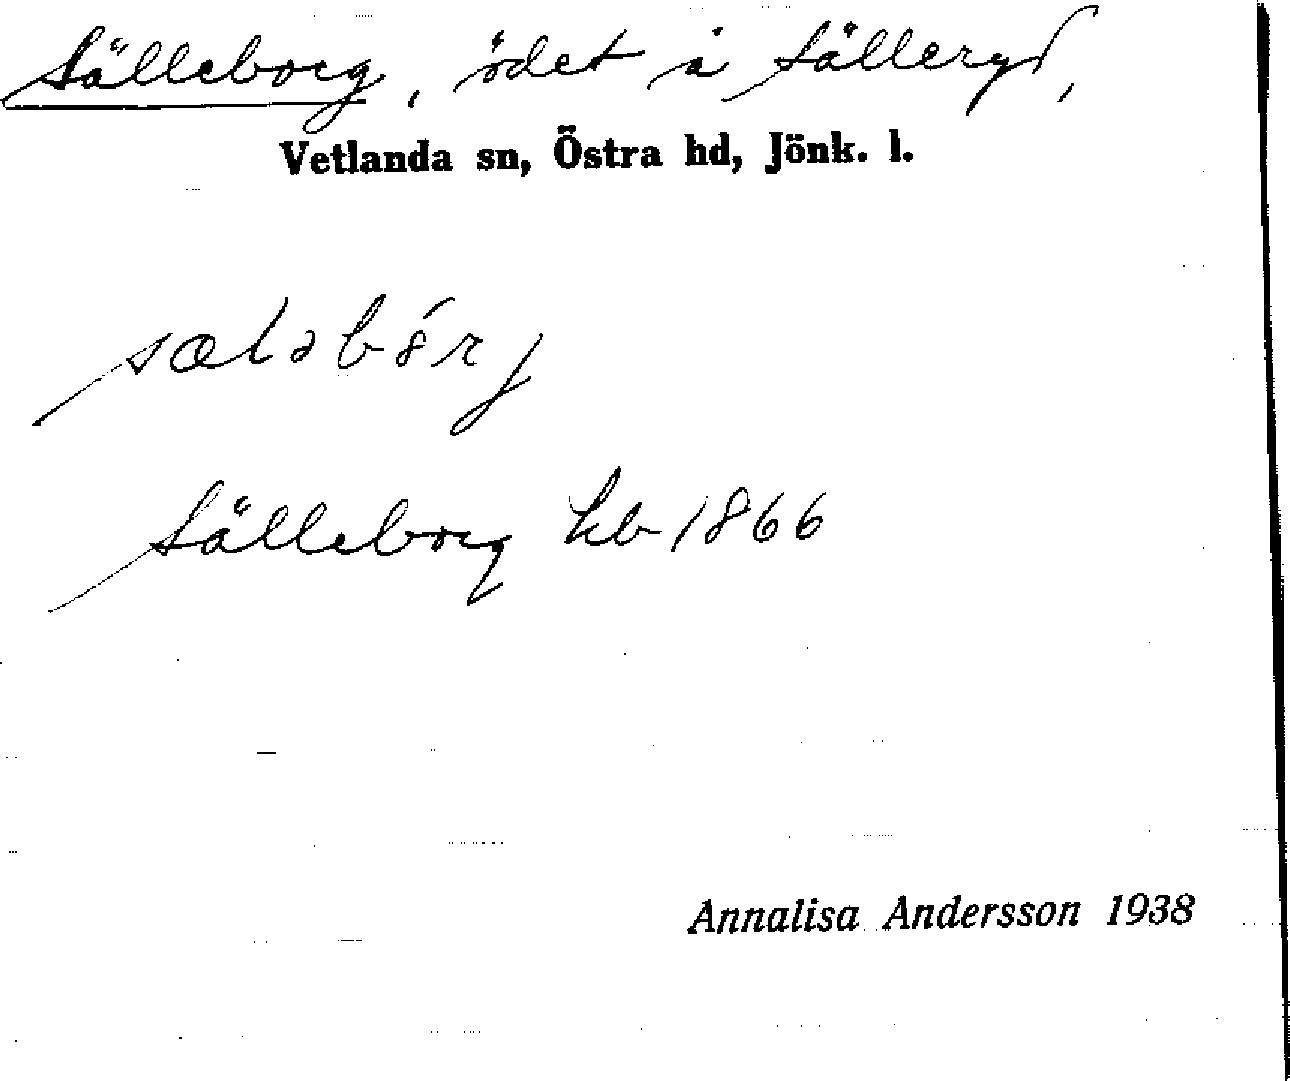 Sälleborg, ödet å Sälleryd,
Vetlanda sn, Östra hd, Jönk. l.
sæləbȯ́rj
Sälleborg hb 1866
Annalisa Andersson 1938